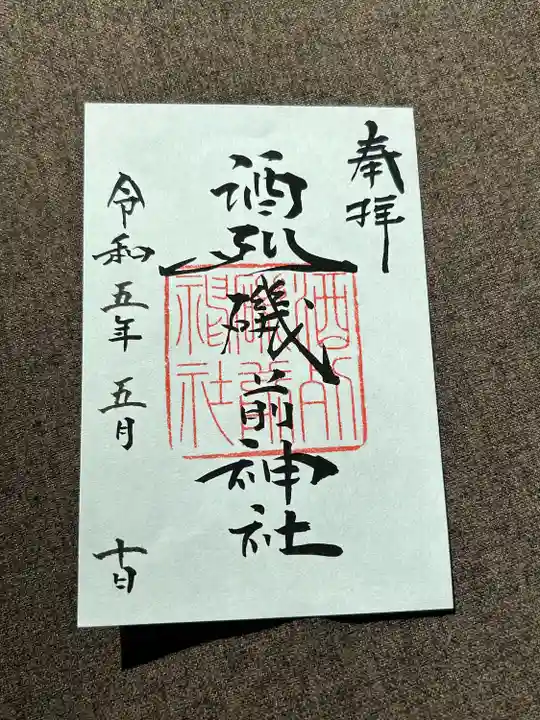 奉拝
酒列磯前神社
令和五年五月十日
酒列
磯前
神社